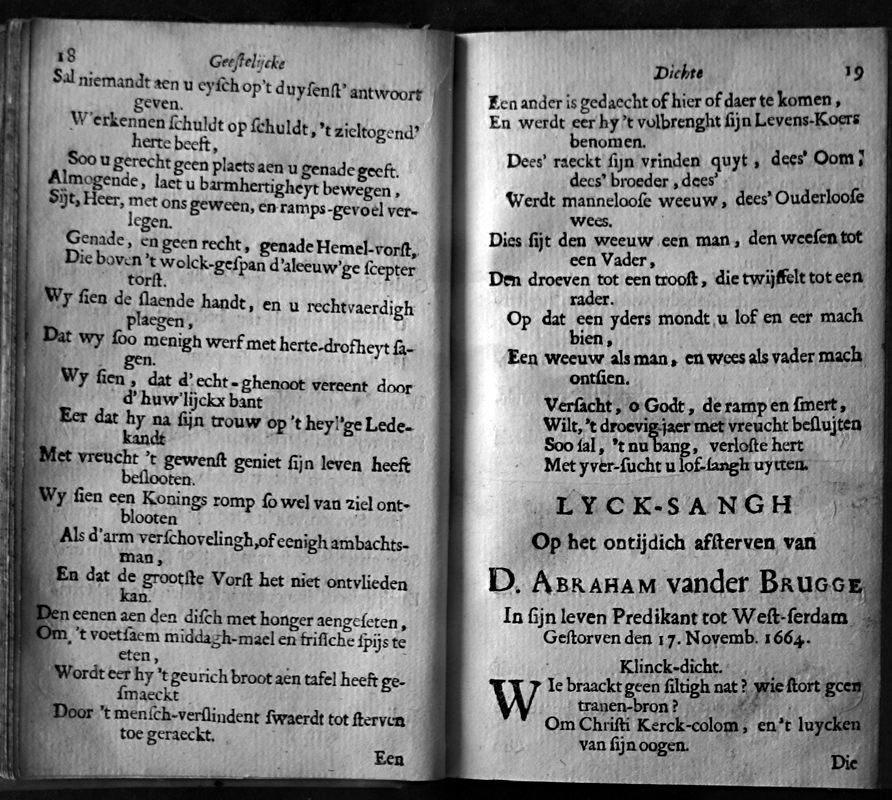 18
Geeſtelijcke
Sal niemandt aen u eyſch op't duyſenſt' antwoort
geven.
W'erkennen ſchuldt op ſchuldt, 't zieltogend'
herte beeft,
Soo u gerecht geen plaets aen u genade geeft.
Almogende, laet u barmhertigheyt bewegen,
Sijt, Heer, met ons geween, en ramps-gevoel ver-
legen.
Genade, en geen recht, genade Hemel-vorſt,
Die boven 't wolck-geſpan d'aleeuw'ge ſcepter
torſt.
Wy ſien de ſlaende handt, en u rechtvaerdigh
plaegen,
Dat wy ſoo menigh werf met herte-drofheyt ſa-
gen.
Wy ſien, dat d'echt-ghenoot vereent door
d'huw'lijckx bant
Eer dat hy na ſijn trouw op 't heyl'ge Lede-
kandt
Met vreucht 't gewenſt geniet ſijn leven heeft
beſlooten.
Wy ſien een Konings romp ſo wel van ziel ont-
blooten
Als d'arm verſchovelingh, of eenigh ambachts-
man,
En dat de grootſte Vorſt het niet ontvlieden
kan.
Den eenen aen den diſch met honger aengeſeten,
Om 't voetſaem middagh-mael en friſſche ſpijs te
eten,
Wordt eer hy 't geurich broot aen tafel heeft ge-
ſmaeckt
Door 't menſch-verſlindent ſwaerdt tot ſterven
toe geraeckt.
Een
Dichte
19
Een ander is gedaecht of hier of daer te komen,
En werdt eer hy 't volbrenght ſijn Levens-Koers
benomen.
Dees' raeckt ſijn vrinden quyt, dees' Oom,
dees' broeder, dees'
Werdt mannelooſe weeuw, dees' Ouderlooſe
wees.
Dies ſijt den weeuw een man, den weeſen tot
een Vader,
Den droeven tot een trooſt, die twijffelt tot een
rader.
Op dat een yders mondt u lof en eer mach
bien,
Een weeuw als man, en wees als vader mach
ontſien.
Verſacht, o Godt, de ramp en ſmert,
Wilt, 't droevig jaer met vreucht beſluyten
Soo ſal, 't nu bang, verloſte hert
Met yver-ſucht u lof-ſangh uytten.
LYCK-SANGH
Op het ontijdich afſterven van
D. ABRAHAM vander BRUGGE
In ſijn leven Predikant tot Weſt-ſerdam
Geſtorven den 17. Novemb. 1664.
Klinck-dicht.
WIe braackt geen ſiltigh nat? wie ſtort geen
tranen-bron?
Om Chriſti Kerck-colom, en 't luycken
van ſijn oogen.
Die